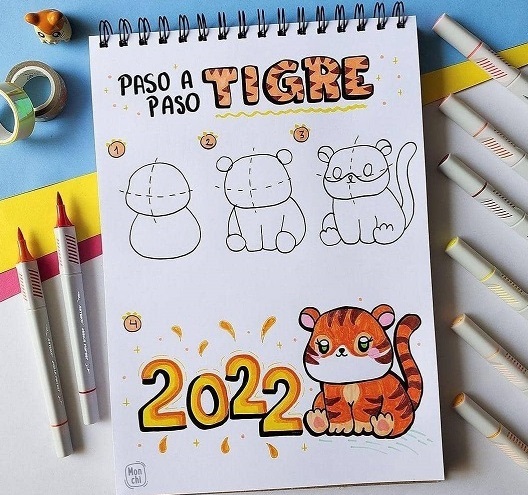 PASO A
PASO
TIGRE
1
2
3
4
2022
Mon
chi